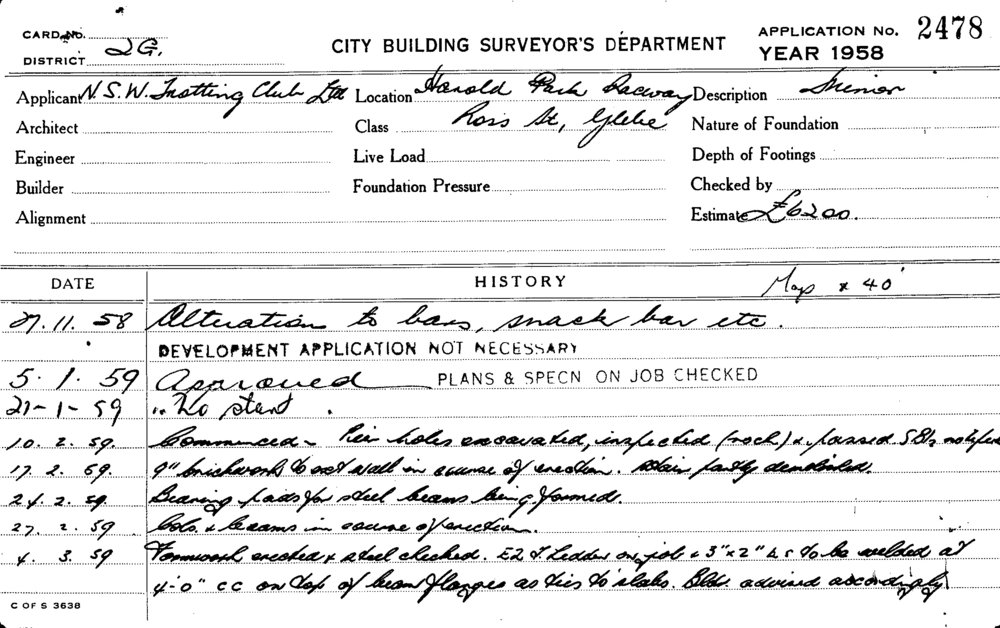 CARD No.
DISTRICT 2G.
CITY BUILDING SURVEYOR'S DEPARTMENT
APPLICATION No. 2478
YEAR 1958
Applicant N.S.W. Trotting Club Ltd Location Harold Park Raceway Description Minor
Architect Class Ross St, Glebe Nature of Foundation
Engineer Live Load Depth of Footings
Builder Foundation Pressure Checked by
Alignment Estimate £6200.
DATE HISTORY Map x 40'
27.11.58 Alteration to bars, snack bar etc.
DEVELOPMENT APPLICATION NOT NECESSARY
5.1.59 Approved PLANS & SPECN ON JOB CHECKED
21-1-59 No start.
10.2.59. Commenced - Pier holes excavated, inspected (rock) & passed. notified
17.2.59. 9" brickwork to ext wall in course of erection. Stair partly demolished.
24.2.59. Bearing pads for steel beams being formed.
27.2.59 Cols. & beams in course of erection.
4.3.59 Formwork erected & steel checked. on job & 3" x 2" to be welded at
4'-0" cc on top of beam flanges as ties to slabs. Bldr. advised accordingly
C OF S 3638